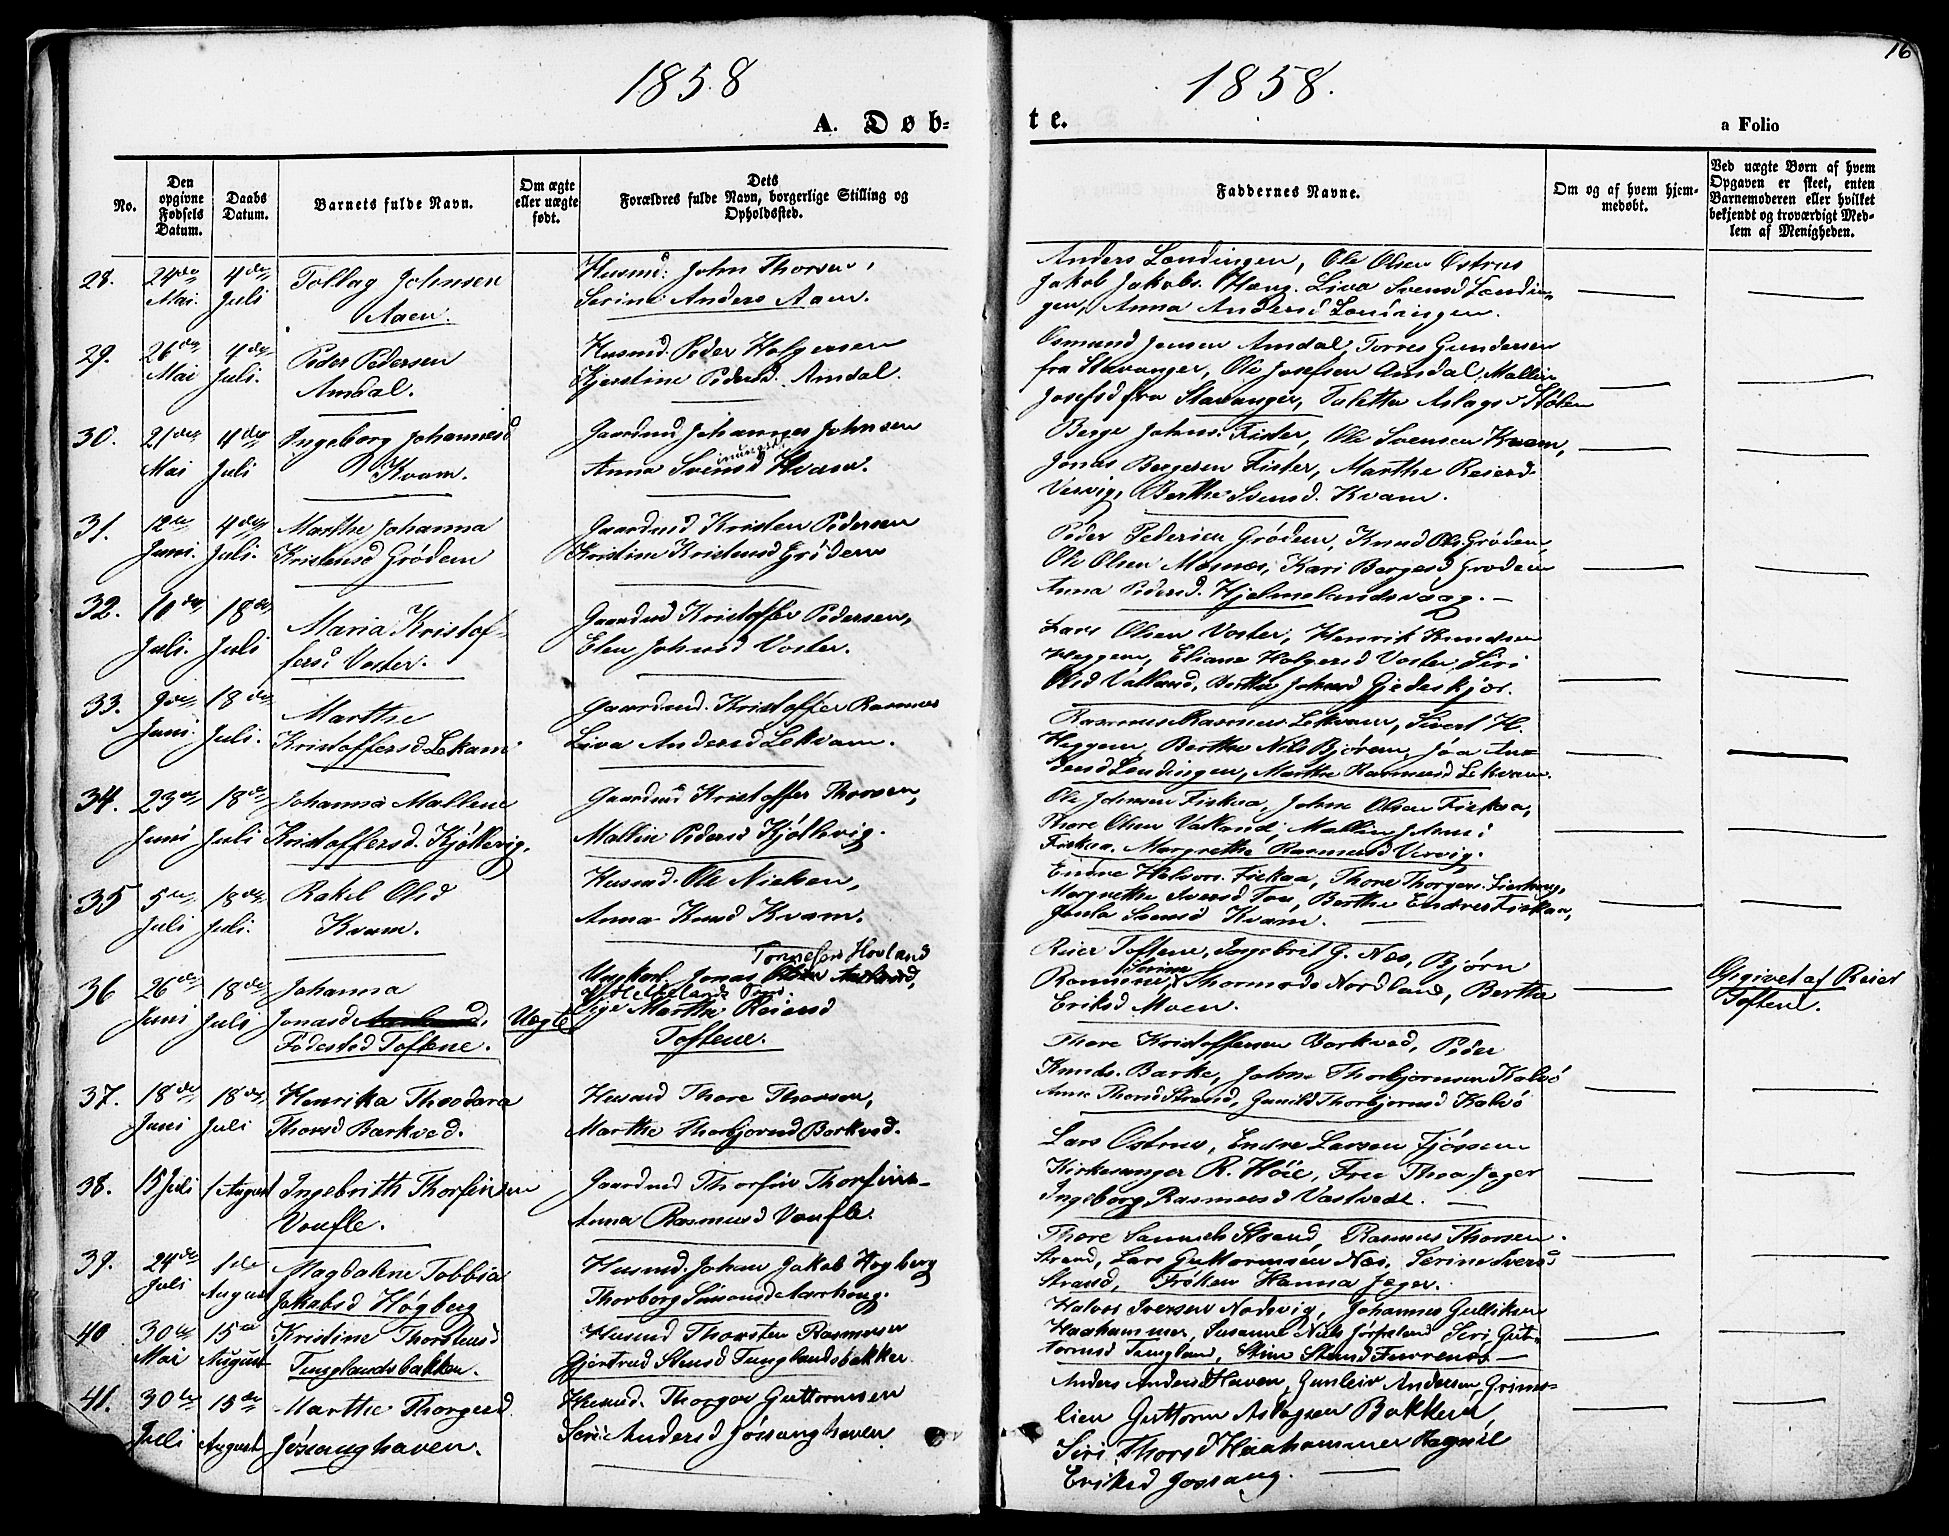 16
1858
1858.
A. Døb-
te.
a Folio
No.
Den opgivne Fødsels Datum.
Daabs Datum.
Barnets fulde Navn.
Om ægte eller uægte født.
Dets Forældres fulde Navn, borgerlige Stilling og Opholdssted.
Faddernes Navne.
Om og af hvem hjemmedøbt.
Ved uægte Børn af hvem Opgaven er skeet, enten Barnemoderen eller hvilket bekjendt og troværdigt Medlem af Menigheden.
28.
24de Mai.
4de Juli
Tollag Johnsen
Aaen.
Husmd: John Thorsen,
Serine Anders Aaen.
Anders Lændingen, Ole Olsen Østrus
Jakob Jakobs. Haug. Liva Svensd Lændin-
gen, Anna Andersd Lændingen.
29.
26de Mai
4de Juli.
Peder Pedersen
Amdal.
Husmd. Peder Holgersen
Kjerstine Pedersd. Amdal.
Osmund Jensen Amdal, Torres Gundersen
fra Stavanger, Ole Josefsen Amdal, Mallin
Josefsd fra Stavanger, Taletta Aslags Stølen
30.
21de Mai
4de Juli
Ingeborg Johannesd
Kvam.
Gaardmd Johannes Johnsen
Anna Svensd Kvam.
Berge Johns. Fister, Ole Svensen Kvam,
Jonas Bergesen Fister, Marthe Reiersd
Vervig, Berthe Svensd. Kvam.
31.
12te Juni.
4de Juli.
Marthe Johanna
Kristensd Grødem
Gaardmd Kristen Pedersen
Kristine Kristensd Grødem
Peder Pedersen Grødem, Knud Ols. Grødem,
Ole Olsen Mosnes, Kari Bergesd Grødem
Anna Pedersd. Hjelmelandsvaag.
32.
10de Juli.
18de Juli
Maria Kristof-
fersd Voster.
Gaardmd Kristoffer Pedersen,
Elen Johnsd Voster.
Lars Olsen Voster, Henrik Knudsen
Heggem, Eliane Holgersd Voster, Siri
Olsd Vatland, Berthe Johnsd Gjedeskjør.
33.
9de Juni.
18de Juli.
Marthe
Kristoffersd Lekam
Gaardmd. Kristoffer Rasmus
Liva Andersd Lekvam.
Rasmus Rasmus Lekvam, Sivert H.
Heggem, Berthe Nils Bjøren, Joa An-
dersd Lendingen, Marthe Rasmusd Lekvam.
34.
23de Juni
18de Juli
Johanna Mallene
Kristoffersd. Kjøllevig.
Gaardmd Kristoffer Thorsen,
Mallin Pedersd Kjøllevig.
Ole Johnsen Fiskaa, John Olsen Fiskaa,
Thore Olsen Vatland, Mallin Johns:
Fiskaa, Margrethe Rasmusd Vervig.
35
5te Juli
18de Juli.
Rakel Olsd
Kvam.
Husmd. Ole Nielsen,
Anna Knusd Kvam.
Endre Halvors. Fiskaa, Thore Thorgers. Fiskaa,
Margrethe Iversd Toe, Berthe Endres Fiskaa,
Samsd Kvam.
36
26de Juni
18de Juli
Johanna
Jonasd
Fødested Toftene.
Uægte
Tønnesen Hovland
Ungkarl Jonas
Pige Marthe Reiersd
Toftene.
Reier Toftene, Ingebrit G. Næs, Bjørn
Serine
Thormods Nordland, Berthe
Eriksd Moen.
Opgivet af Reier
Toftene.
37.
18de Juni
18de Juli
Henrika Theodora
Thorsd Barkved.
Husmd Thore Thorsen,
Marthe Thorbjørnsd Barkved.
Thore Kristoffersen Barkved, Peder
Knuds. Barke, John Thorbjørnsen Kalvø
Anne Thorsd Strand, Gunild Thorbjørnsd Kalvø
38.
15 Juli
1 August
Ingebrith Thorfinsen
Voufle.
Gaardmd Thorfin Thorfins-
Anna Rasmusd Voufle.
Lars Østrus, Endre Larsen Fjøssene
Kirkesanger R. Høie, Fru Thea Jæger
Ingeborg Rasmusd Vastvedt.
39.
24de Juli
1ste August
Magdalene Tobbia
Jakobsd Høgberg
Husmd. Johan Jakob Høgberg
Thorborg Simonsd Aarhoug.
Thore Samuels Strand, Rasmus Thorsen
Strand, Lars Guttormsen Næs, Serine Iversd
Strand, Frøken Hanna Jæger.
40
30te Mai
15de August
Kristine Thorstensd
Tunglandsbakken.
Husmd Thorsten Rasmusen
Gjertrud Stensd Tunglandsbakker
Halvor Iversen Nødvig, Johannes Gulliken
Haahammer, Susanne Niels Jørpeland Seri Gut-
tormsd Tungland, Stine Stensd Furrenes
41.
30te Juli
15de August
Marthe Thorgersd
Jøssanghaven.
Husmd. Thorger Guttormsen
Seri Andersd Jøssanghaven
Anders Andersd Haven, Gunleiv Andersen Grims-
lien Guttorm Aslagsen Bakken,
Siri Thorsd Haahammer Ragnil
Eriksd Jøssang.